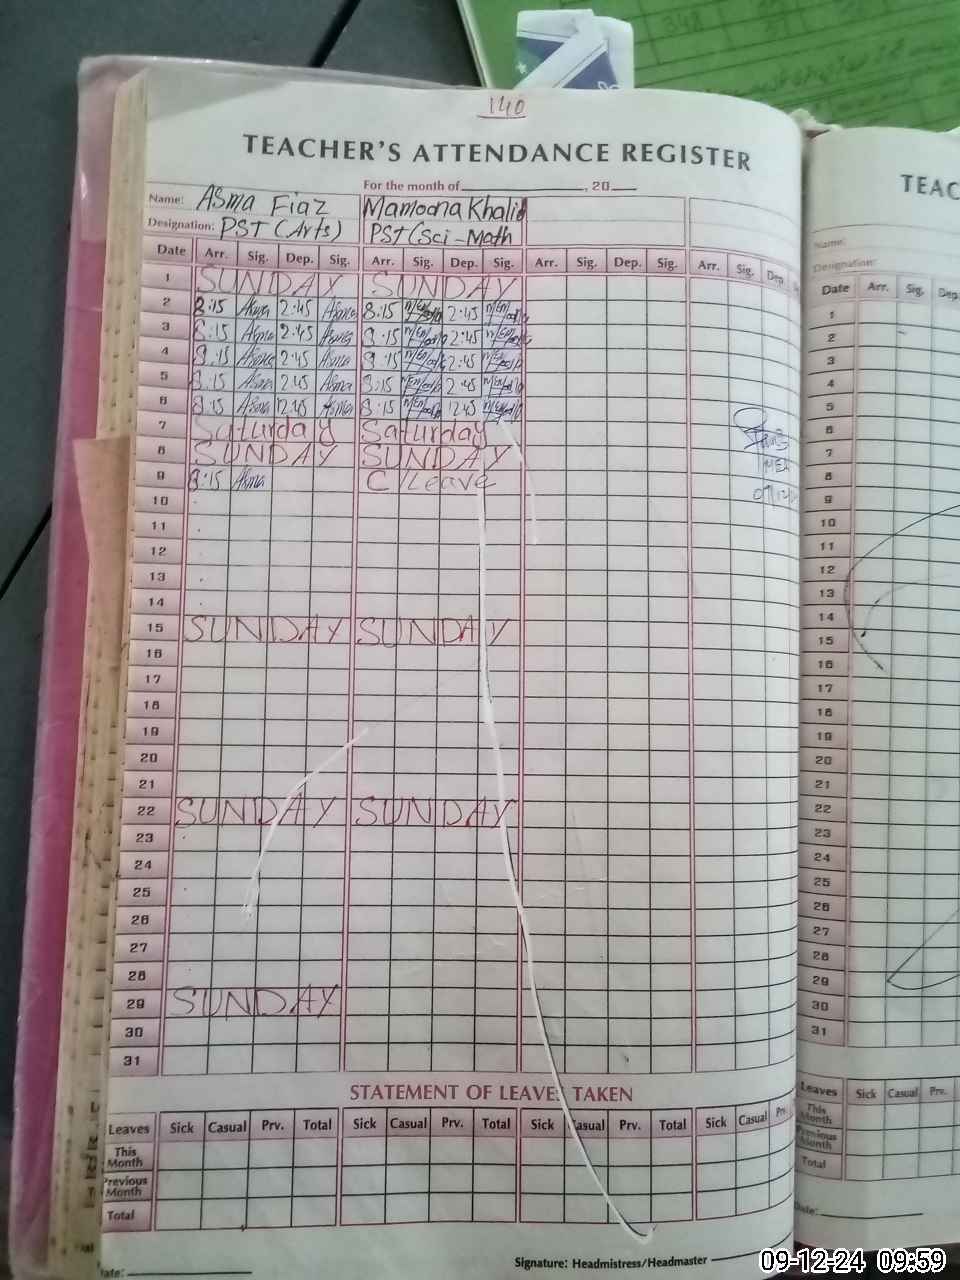 140
TEACHER'S ATTENDANCE REGISTER
For the month of , 20
Name: Asma Fiaz Mamoona Khalid
Designation: PST (Arts) PST (Sci-Math
Date Arr. Sig. Dep. Sig. Arr. Sig. Dep. Sig. Arr. Sig. Dep. Sig. Arr. Sig. Dep.
1 SUNDAY SUNDAY
2 8:15 Asma 2:45 Asma 8:15 2:45
3 8:15 Asma 2:45 Asma 8:15 2:45
4 8:15 Asma 2:45 Asma 8:15 2:45
5 8:15 Asma 2:45 Asma 8:15 2:45
6 8:15 Asma 2:45 Asma 8:15 2:45
7 Saturday Saturday
8 SUNDAY SUNDAY
9 8:15 Asma C/Leave
10
11
12
13
14
15 SUNDAY SUNDAY
16
17
18
19
20
21
22 SUNDAY SUNDAY
23
24
25
26
27
28
29 SUNDAY
30
31
STATEMENT OF LEAVES TAKEN
Leaves Sick Casual Prv. Total Sick Casual Prv. Total Sick Casual Prv. Total Sick Casual Prv.
This Month
Previous Month
Total
Date:
Signature: Headmistress/Headmaster
TEAC
Name:
Designation:
Date Arr. Sig. Dep
1
2
3
4
5
6
7
8
9
10
11
12
13
14
15
16
17
18
19
20
21
22
23
24
25
26
27
28
29
30
31
Leaves Sick Casual Prv.
This Month
Previous Month
Total
Date:
348
09-12-24 09:59